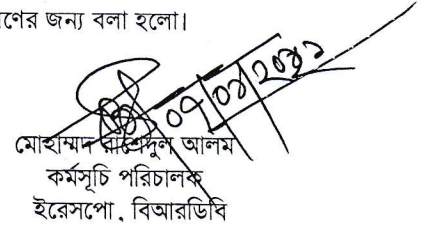 ণের জন্য বলা হলো।
মোহাম্মদ রাশেদুল আলম
কর্মসূচি পরিচালক
ইরেসপো, বিআরডিবি